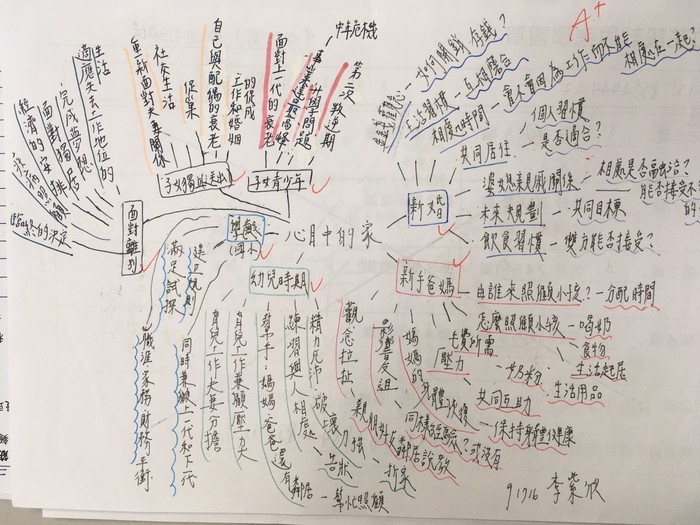 A+
心目中的家
新婚
金錢觀念 - 如何開銷、存錢?
生活習慣 - 互相磨合
相處時間 - 會不會因為工作而不能相處在一起?
共同居住 - 個人習慣
是否適合?
婆媳意見或關係 - 相處是否融洽?
未來規劃 - 共同目標
飲食習慣 - 雙方能否接受?
新手爸媽
由誰來照顧小孩? - 分配時間
怎麼照顧小孩 - 喝奶
食物
生活起居
花費所需 - 奶粉
生活用品
壓力 - 共同互助
媽媽的身體恢復 - 保持身體健康
影響交友圈
同樣經驗?或沒有
觀念拉扯
親朋好友鄰居說教
幼兒時期
精力充沛
破壞力強
拆家
練習與人相處
告狀
幫手
媽媽爸爸
還有鄰居 - 幫忙照顧
育兒工作兼顧壓力
育兒工作夫妻分擔
學齡
(國小)
建立規則
滿足試探
同時兼顧上一代和下一代
職涯家務財務平衡
子女青少年
中年危機
第二次叛逆期
升學問題
事業達最高峰
面對上一代的衰老
子女獨立送出
工作和婚姻的促成
自己與配偶的衰老
促巢
社交生活
重新面對夫妻關係
面對離別
適應失去工作地位的生活
完成夢想
面對獨居
經濟的安排
臨終的決定
91716 李紫欣